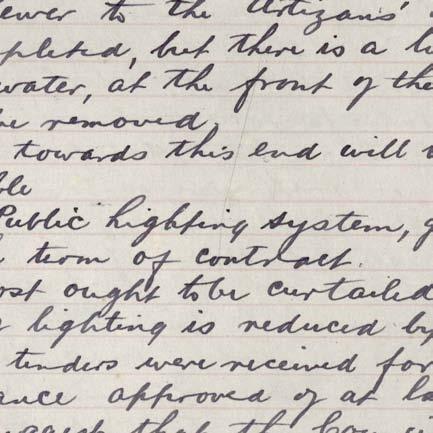 ewer to the Artizans'
pleted, but there is a
water, at the front of the
be removed.
towards this end will
ble
Public lighting system, g
term of contract.
ost ought tobe curtailed
lighting is reduced by
tenders were received for
ance approved of at la
uggest that the Coun